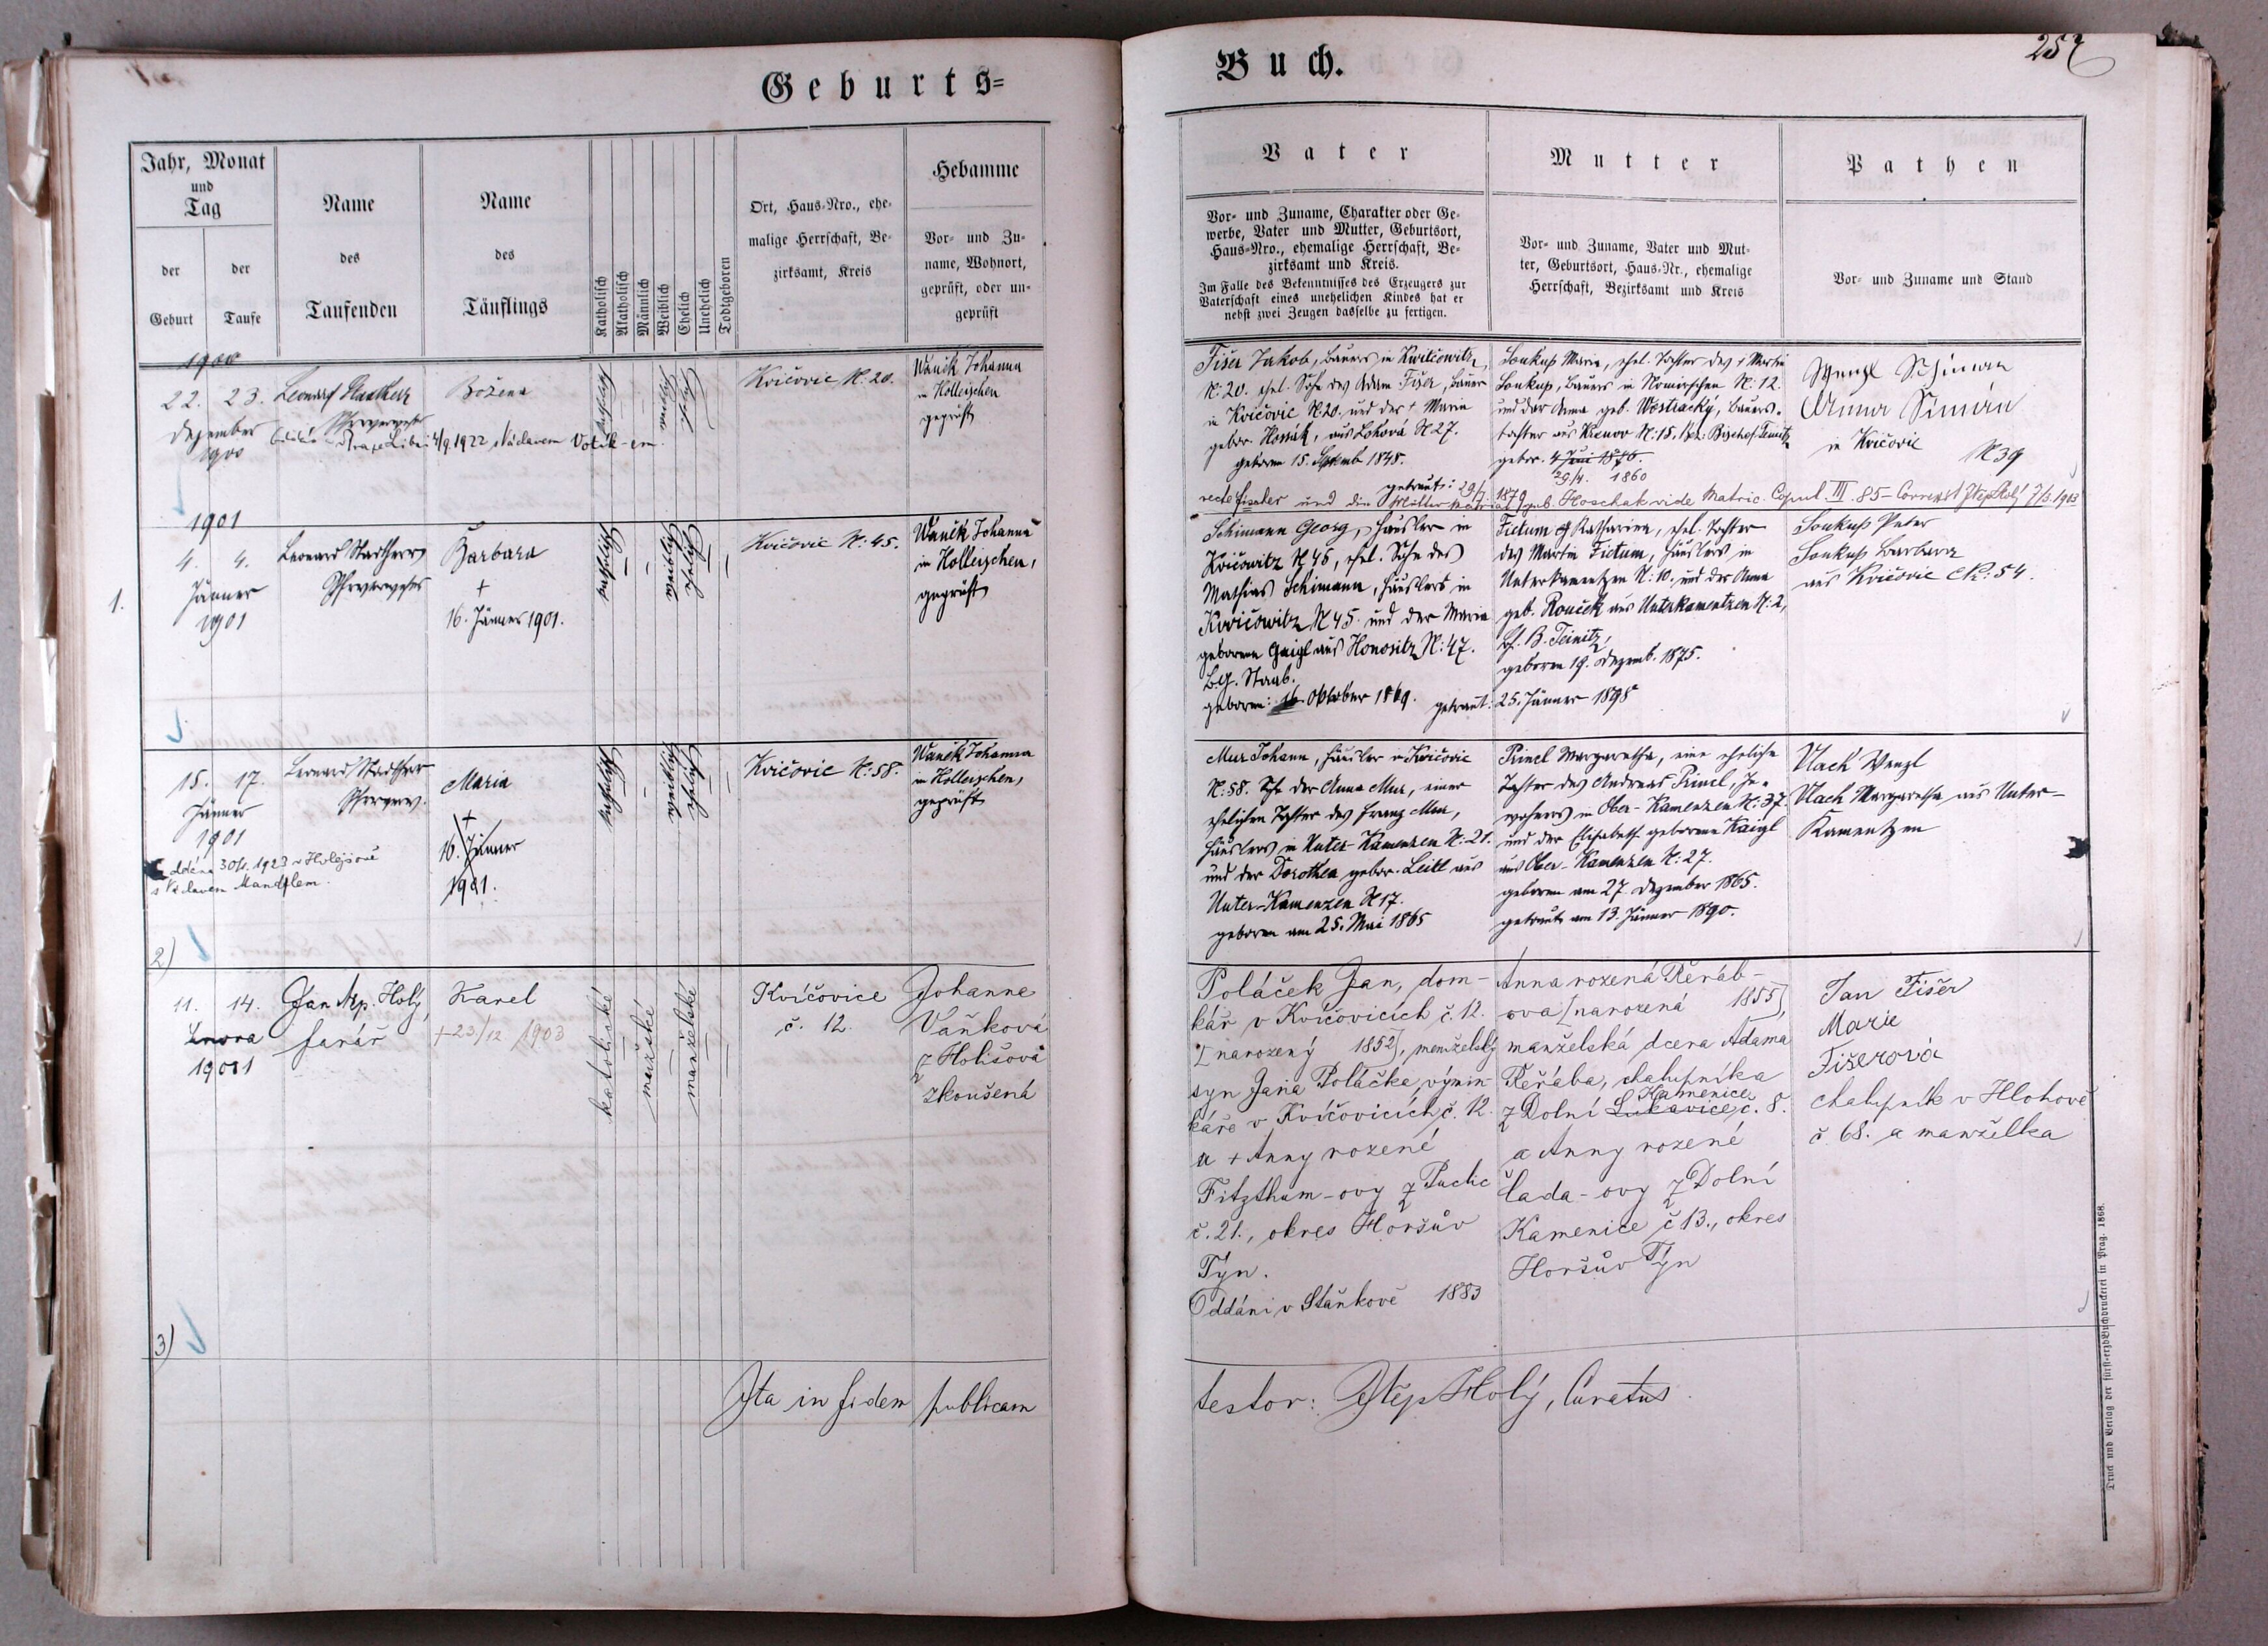 Geburts=
Buch.
257
Jahr, Monat
und
Tag
der
Geburt
der
Taufe
Name
des
Taufenden
Name
des
Täuflings
Katholisch
Akatholisch
Männlich
Weiblich
Ehelich
Unehelich
Todtgeboren
Ort, Haus-Nro., ehe-
malige Herrschaft, Be-
zirksamt, Kreis
Hebamme
Vor- und Zu-
name, Wohnort,
geprüft, oder un-
geprüft
Vater
Vor- und Zuname, Charakter oder Ge-
werbe, Vater und Mutter, Geburtsort,
Haus-Nro., ehemalige Herrschaft, Be-
zirksamt und Kreis.
Im Falle des Bekenntnisses des Erzeugers zur
Vaterschaft eines unehelichen Kindes hat er
nebst zwei Zeugen dasselbe zu fertigen.
Mutter
Vor- und Zuname, Vater und Mut-
ter, Geburtsort, Haus-Nr., ehemalige
Herrschaft, Bezirksamt und Kreis
Pathen
Vor- und Zuname und Stand
1900
22. 23.
Dezember
1900
Leonard
Pfarrverweser
Božena
4/9. 1922 s Václavem Votík-em.
katholisch
weiblich
ehelich
Kvičovic N: 20.
Waněk Johanna
in Holleischen
geprüft
Fišer Jakob, Bauers in Kwičowitz,
N: 20. ehel. Sohn des Adam Fišer, Bauer
in Kvičovic N. 20. und der + Maria
gebor. Hossák, aus Lohová N 27.
geboren 15. Septemb 1848.
Soukup Maria, ehel. Tochter des + Martin
Soukup, Bauers in N: 12.
und der Anna geb. Wostracký, Bauers-
tochter aus N: 15. Bez: Bischof Teinitz
gebor. 4 Juni 1876.
29/4. 1860
getraut: 29/7. 1879
Wenzl Schiman
Anna Šimán
in Kvičovic
N 39
recte Fischer und die Mutter geb. Hoschak vide Matric. Copul. III. 85 - Correxit JNepHolý 7/3. 1903
1901
1.
4. 4.
Jänner
1901
Leonard Stadtherr
Pfarrverweser
Barbara
+
16. Jänner 1901.
katholisch
weiblich
ehelich
Kvičovic N: 45.
Waněk Johanna
in Holleischen,
geprüft
Schimann Georg, Häusler in
Kvičowitz N 45, ehel. Sohn des
Mathias Schimann, Häuslers in
Kvičowitz N 45. und der Maria
geborenen Gaigl aus Honositz N: 47.
B.G. Staab.
geboren: 16. Oktober 1869. getraut: 25. Jänner 1898
Fictum Katharina, ehel. Tochter
des Martin Fictum, Häuslers in
Unterkamentzen N: 10. und der Anna
geb. Rouček aus Unterkamentzen N: 2,
B. Teinitz,
geboren 19. Dezemb. 1875.
Soukup Peter
Soukup Barbara
aus Kvičovic N: 54.
15. 17.
Jänner
1901
Leonard Stadtherr
Pfarrverw.
Maria
+
16. Jänner
1901.
Oddána 30/4. 1923 v Holejšově
s Václavem Mandlem.
2)
katholisch
weiblich
ehelich
Kvičovic N: 58.
Waněk Johanna
in Holleischen,
geprüft
Mur Johann, Häusler in Kvičovic
N: 58. Sohn der Anna Mur, einer
ehelichen Tochter des Franz Mur,
Häuslers in Unter-Kamenzen N: 21.
und der Dorothea gebor. Leitl aus
Unter-Kamenzen N 17.
geboren am 25. Mai 1865
Princl Margaretha, eine eheliche
Tochter des Andreas Princl, In-
wohners in Ober-Kamenzen N: 37.
und der Elisabeth geborenen Kaigl
aus Ober-Kamenzen N: 27.
geboren am 27. Dezember 1865.
getraut am 13. Jänner 1890.
Vlach Wenzl
Vlach Margaretha aus Unter-
Kamentzen
11. 14.
Února
1901
Jan Nep. Holý,
farář
Karel
+ 23/12. 1903
3)
katolické
mužské
manželské
Kvíčovice
č. 12.
Johanna
Vaňková
z Holišova
zkoušená
Poláček Jan, dom-
kář v Kvíčovicích č. 12.
[narozený 1852], manželský
syn Jana Poláčka, výmin-
káře v Kvíčovicích, č. 12.
a + Anny rozené
Fitzthum-ovy z Puclic
č. 21., okres Horšův
Týn.
Oddáni v Staňkově 1883
Anna rozená Řeřáb-
ova [narozená 1855],
manželská dcera Adama
Řeřába, chalupníka
Kamenice
z Dolní Lukavice, č. 8.
a Anny rozené
Čada-ovy z Dolní
Kamenice č 13., okres
Horšův Týn
Jan Fišer
Marie
Fišerová
chalupník v Hlohově
č. 68. a manželka
Ita in fidem publicam
testor: JNepHolý, Curatus.
Druck und Verlag der fürst-erzb. Buchdruckerei in Prag. 1868.